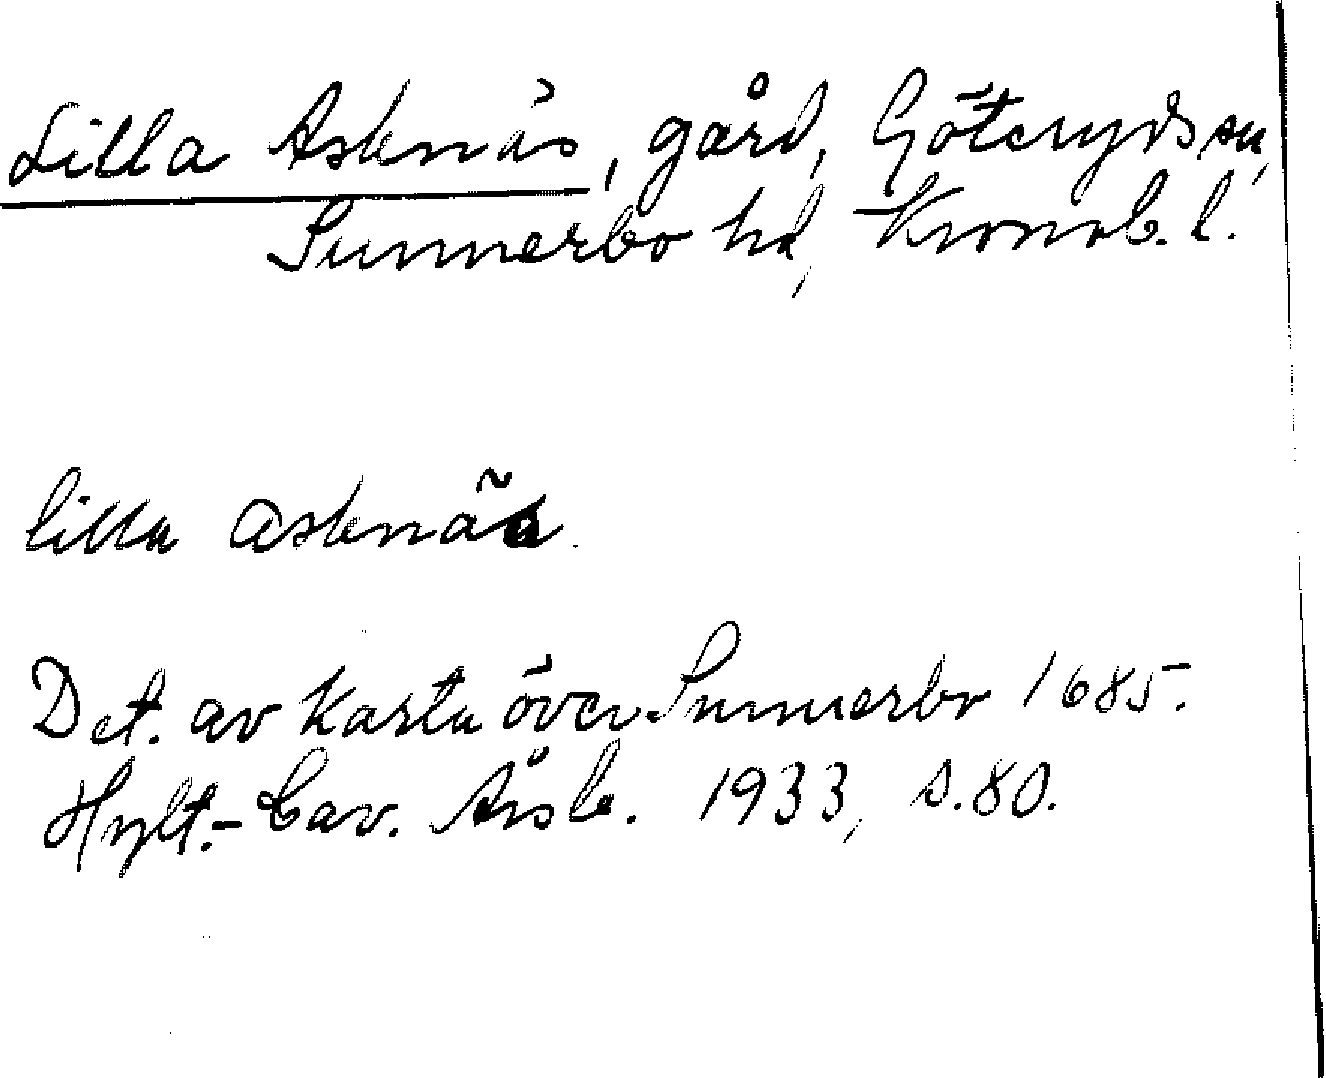 Lilla Asknäs, gård, Göteryds sn,
Sunnerbo hd, Kronob. l.
lilla Asknäs.
Det. av Karta över Sunnerbo 1685.
Hylt.-Cav. Årsb. 1933, s.80.